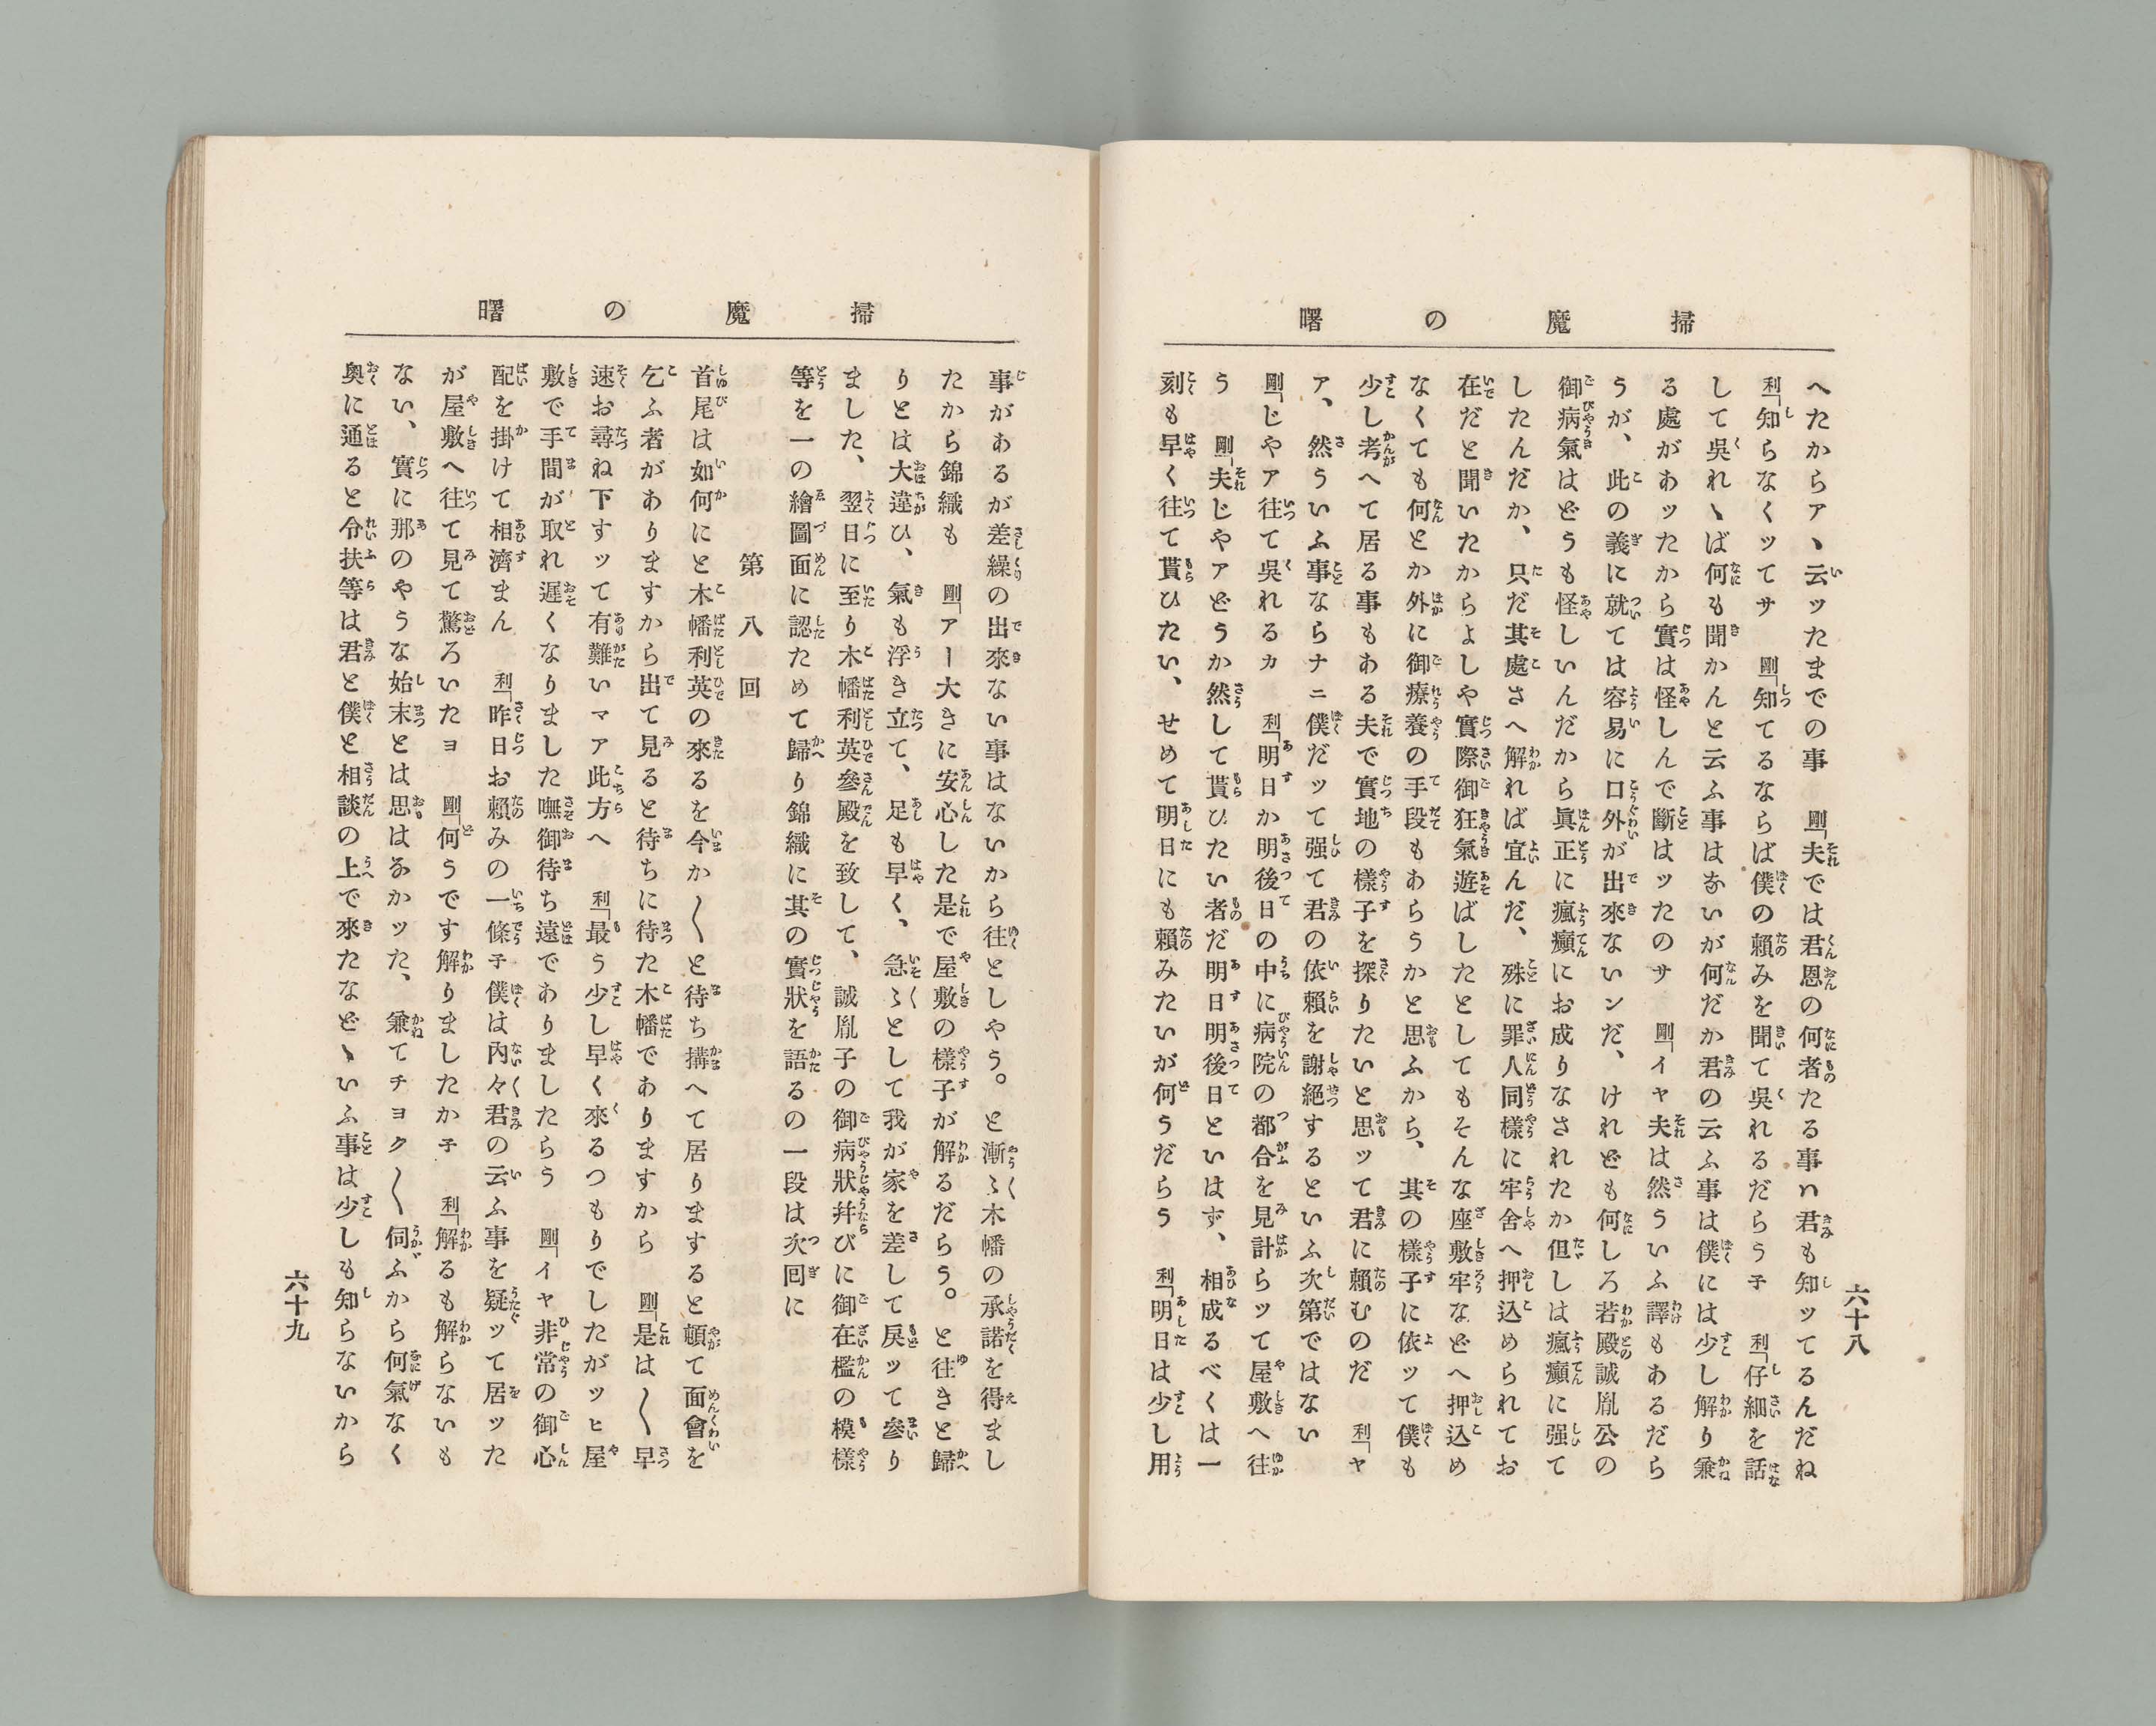 掃魔の曙
六十八
へたからア、云ッたまでの事　剛「夫では君恩の何者たる事ハ君も知ッてるんだね
利「知らなくッてサ　剛「知てるならば僕の頼みを聞て呉れるだらう子　利「仔細を話
して呉れゝば何も聞かんと云ふ事はないが何だか君の云ふ事は僕には少し解り兼
る處があッたから實は怪しんで斷はッたのサ　剛「イヤ夫は然ういふ譯もあるだら
うが、此の義に就ては容易に口外が出來ないンだ、けれども何しろ若殿誠胤公の
御病氣はどうも怪しいんだから眞正に瘋癲にお成りなされたか但しは瘋癲に强て
したんだか、只だ其處さへ解れば宜んだ、殊に罪人同樣に牢舍へ押込められてお
在だと聞いたからよしや實際御狂氣遊ばしたとしてもそんな座敷牢などへ押込め
なくても何とか外に御療養の手段もあらうかと思ふから、其の樣子に依ッて僕も
少し考へて居る事もある夫で實地の樣子を探りたいと思ッて君に頼むのだ　利「ヤ
ア、然ういふ事ならナニ僕だッて强て君の依頼を謝絶するといふ次第ではない
剛「じやア往て呉れるカ　利「明日か明後日の中に病院の都合を見計らッて屋敷へ往
う　剛「夫じやアどうか然して貰ひたい者だ明日明後日といはず、相成るべくは一
刻も早く往て貰ひたい、せめて明日にも頼みたいが何うだらう　利「明日は少し用
掃魔の曙
事があるが差繰の出來ない事はないから往としやう。と漸〻木幡の承諾を得まし
たから錦織も　剛「アー大きに安心した是で屋敷の樣子が解るだらう。と往きと歸
りとは大違ひ、氣も浮き立て、足も早く、急〻として我が家を差して戻ッて參り
ました、翌日に至り木幡利英參殿を致して、誠胤子の御病狀幷びに御在檻の模樣
等を一の繪圖面に認ためて歸り錦織に其の實狀を語るの一段は次回に
第八回
首尾は如何にと木幡利英の來るを今か〱と待ち搆へて居りますると頓て面會を
乞ふ者がありますから出て見ると待ちに待た木幡でありますから　剛「是は〱早
速お尋ね下すッて有難いマア此方へ　利「最う少し早く來るつもりでしたがッヒ屋
敷で手間が取れ遲くなりました嘸御待ち遠でありましたらう　剛「イヤ非常の御心
配を掛けて相濟まん　利「昨日お頼みの一條子僕は內々君の云ふ事を疑ッて居ッた
が屋敷へ往て見て驚ろいたヨ　剛「何うです解りましたか子　利「解るも解らないも
ない、實に那のやうな始末とは思はなかッた、兼てチヨク〱伺ふから何氣なく
奧に通ると令扶等は君と僕と相談の上で來たなどゝいふ事は少しも知らないから
六十九